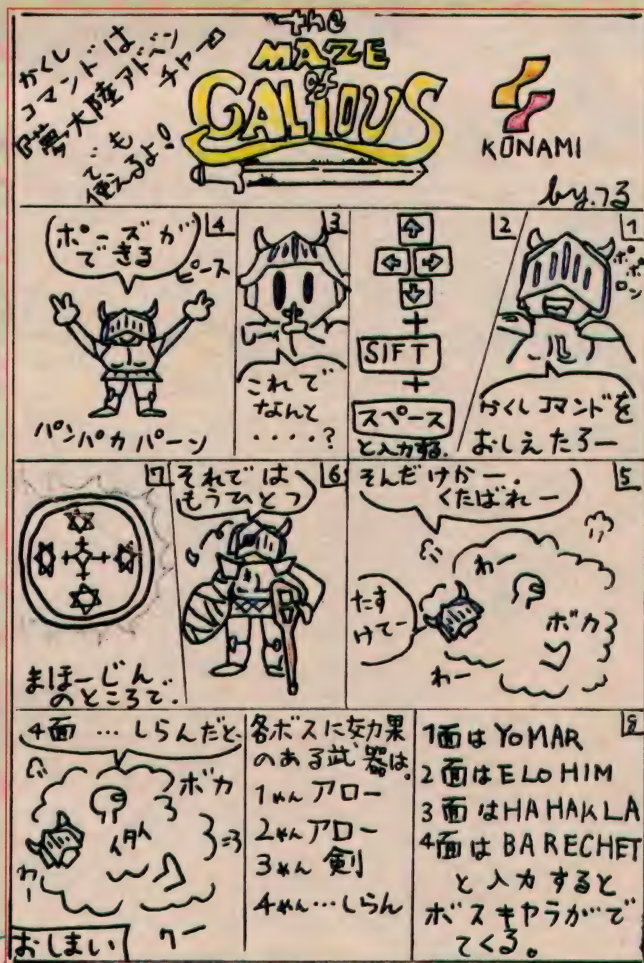 かくし
コマンドは
夢大陸アドベン
チャー
でも
使えるよ!
the
MAZE
of
GALIOUS
KONAMI
by.つる
1
ポポロン
かくしコマンドを
おしえたろー
2
+
SIFT
+
スペース
と入力する.
3
これで
なんと
・・・・?
4
ポーズが
できる
ピース
パンパカパーン
5
そんだけかー.
くたばれー
わー
たす
けてー
ボカ
わー
6
それでは
もうひとつ
7
まほーじん
のところで.
8
1面はYOMAR
2面はELOHIM
3面はHAHAKLA
4面はBARECHET
と入力すると
ボスキャラがで
てくる。
各ボスに効果
のある武器は.
1めん アロー
2めん アロー
3めん 剣
4めん…しらん
4面…しらんだと
ボカ
イタイ
わー
おしまい